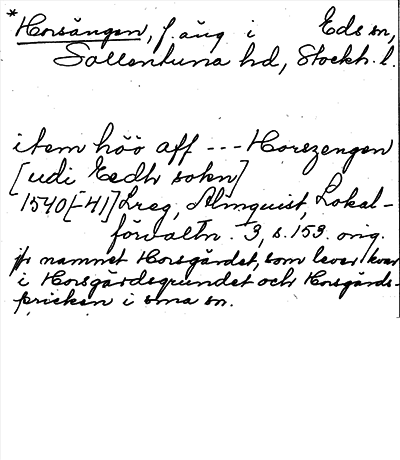 * Horsängen, f. äng i Eds sn,
Sollentuna hd, Stockh. l.
item höö aff --- Horszengen
[udi Eedh sokn]
1540[-41] Lreg, Almquist, Lokal-
förvaltn. 3, s. 153. orig.
jfr namnet Horsgärdet, som lever kvar
i Horsgärdsgrundet och Horsgärds-
pricken i sma sn.